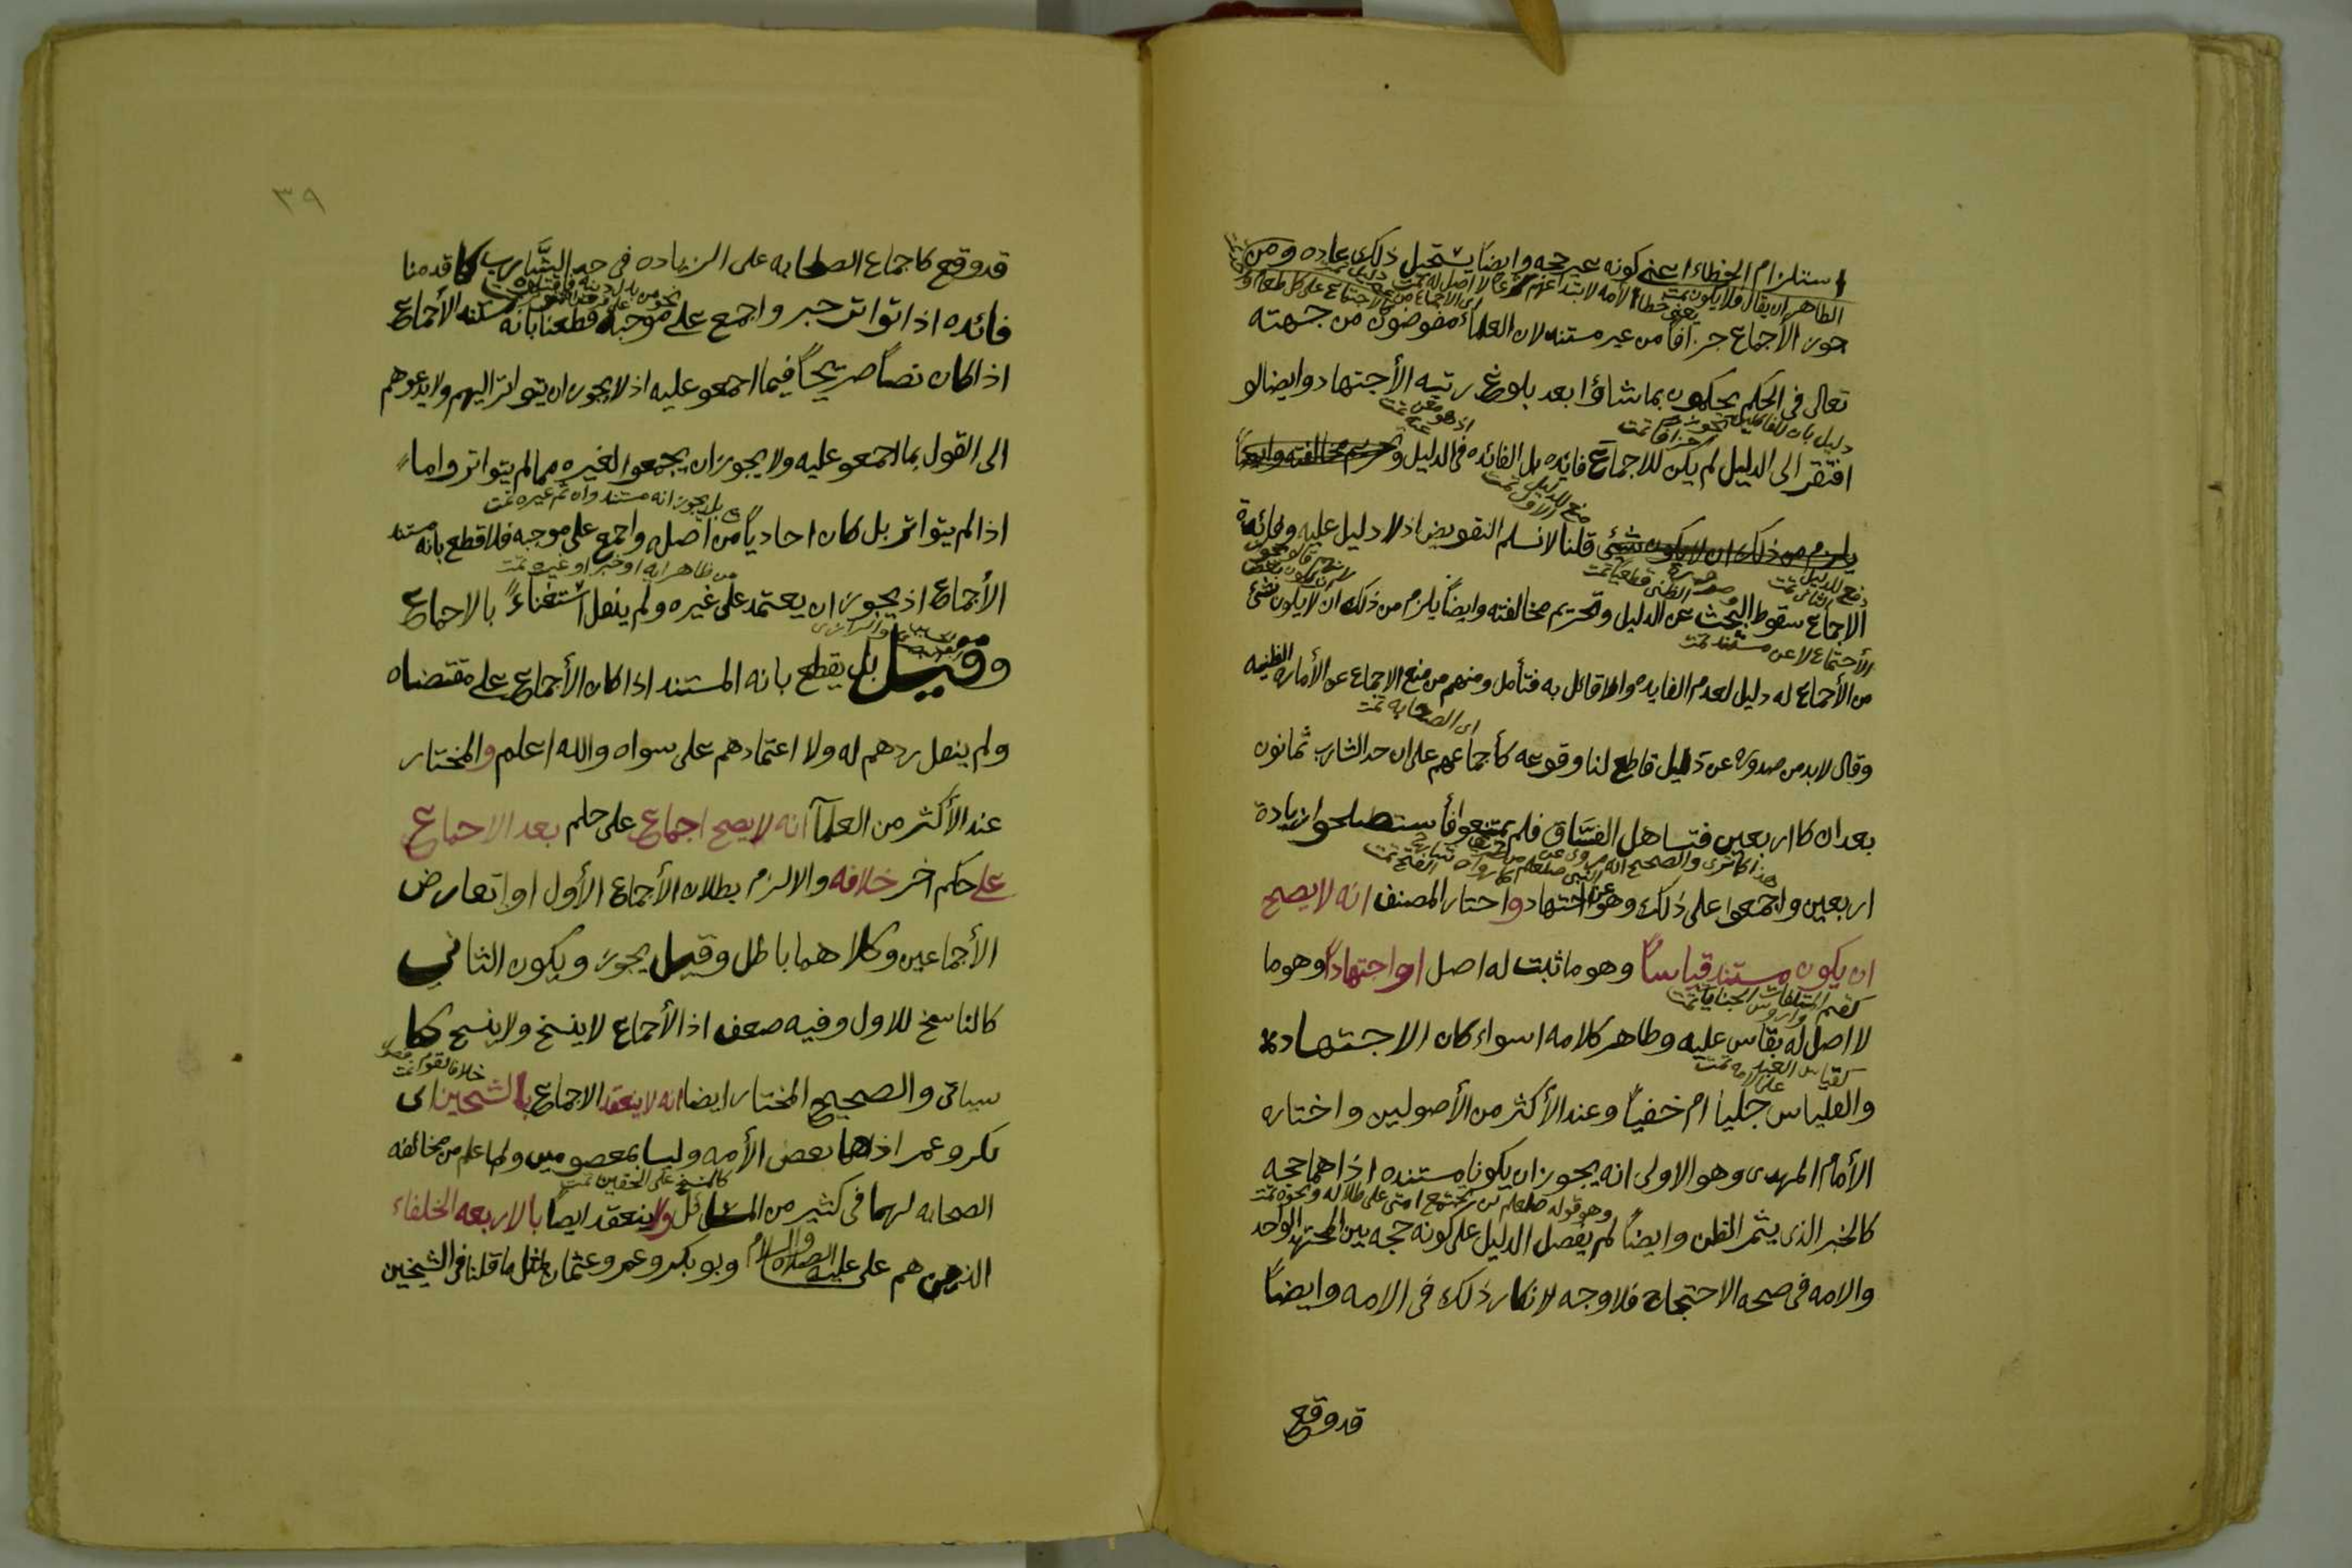 استلزام الخطاء اعني كونه غير حجه وايضاً يستحيل ذلك عاده ومن
جوز الأجماع جزافاً من غير مستند لان العلماء مفوضون من جهته
تعالى في الحكم يحكمون بما شاؤا بعد بلوغ رتبه الأجتهاد وايضا لو
دليل بان للقائلين بتجويزه جزافا تمت
افتقر الى الدليل لم يكن للاجماع فائده بل الفائده في الدليل وتحريم مخالفته وايضاً
منع للدليل الاول تمت
يلزم من ذلك ان لا يكون شيء قلنا لا نسلم التفويض اذ لا دليل عليه وفائدة
دفع للدليل الثاني تمت
الاجماع سقوط البحث عن الدليل وتحريم مخالفته وايضاً يلزم من ذلك ان لا يكون شيء
الأجتماع لا عن مستند تمت
من الأجماع له دليل لعدم الفايده ولا قائل به فتأمل ومنهم من منع الاجماع عن الأماره الظنيه
اى الصحابه تمت
وقال لا بد من صدوره عن دليل قاطع لنا وقوعه كأجماعهم على ان حد الشارب ثمانون
بعد ان كا اربعين فتساهل الفساق فلم يمتنعوا فأستصلحوا زيادة
اربعين واجمعوا على ذلك وهو عن اجتهاد واختار المصنف انه لا يصح
ان يكون مستند قياساً وهو ما ثبت له اصل او اجتهاداً وهو ما
كقيم المتلفات واروش الجنايات تمت
لا اصل له يقاس عليه وظاهر كلامه اسواء كان الاجتهاد
كقياس العبد على الامه تمت
والقياس جلياً ام خفياً وعند الأكثر من الأصوليين واختاره
الأمام المهدي وهو الاولى انه يجوز ان يكونا مستنده اذ هما حجه
وهو قوله صلعم لن تجتمع امتي على ظلاله ونحوه تمت
كالخبر الذي يثمر الظن وايضاً لم يفصل الدليل على كونه حجه بين المجتهد الواحد
والامه في صحه الاحتجاج فلا وجه لانكار ذلك في الامه وايضاً
قد وقع
٣٩
قد وقع كاجماع الصحابه على الزياده في حد الشارب كما قدمنا
فائده اذا تواتر خبر واجمع على موجبه قطعنا بانه مستند الأجماع
اذا كان نصاً صريحاً فيما اجمعو عليه اذ لا يجوز ان يتواتر اليهم ولا يدعوهم
الى القول بما اجمعو عليه ولا يجوز ان يجمعوا لغيره مما لم يتواتر واما
بل يجوز انه مستند وان ثم غيره تمت
اذا لم يتواتر بل كان احادياً من اصله واجمع على موجبه فلا قطع بانه مستند
من ظاهر ايه او خبر او غيره تمت
الأجماع اذ يجوز ان يعتمد على غيره ولم ينقل استغناءً بالاجماع
وقيل بل يقطع بانه المستند اذا كان الأجماع على مقتضاه
ولم ينقل ردهم له ولا اعتمادهم على سواه والله اعلم والمختار
عند الأكثر من العلمآ انه لا يصح اجماع على حكم بعد الاجماع
على حكم اخر خلافه والا لزم بطلان الأجماع الأول او تعارض
الأجماعين وكلاهما باطل وقيل يجوز ويكون الثاني
كالناسخ للاول وفيه ضعف اذ الأجماع لا ينسخ ولا ينسخ كما
سياتي والصحيح المختار ايضا انه لا ينعقد الاجماع بالشيخين اى
بكر وعمر اذ هما بعض الأمه وليسا بمعصومين ولما علم من مخالفه
كالمسح على الخفين تمت
الصحابه لهما في كثير من المسائل ولا ينعقد ايضا بالاربعه الخلفاء
الذين هم علي عليه الصلاة والسلام وبو بكر وعمر وعثمان لمثل ما قلنا في الشيخين